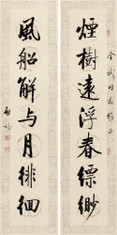 煙樹遠浮春縹緲
風船解与月徘徊